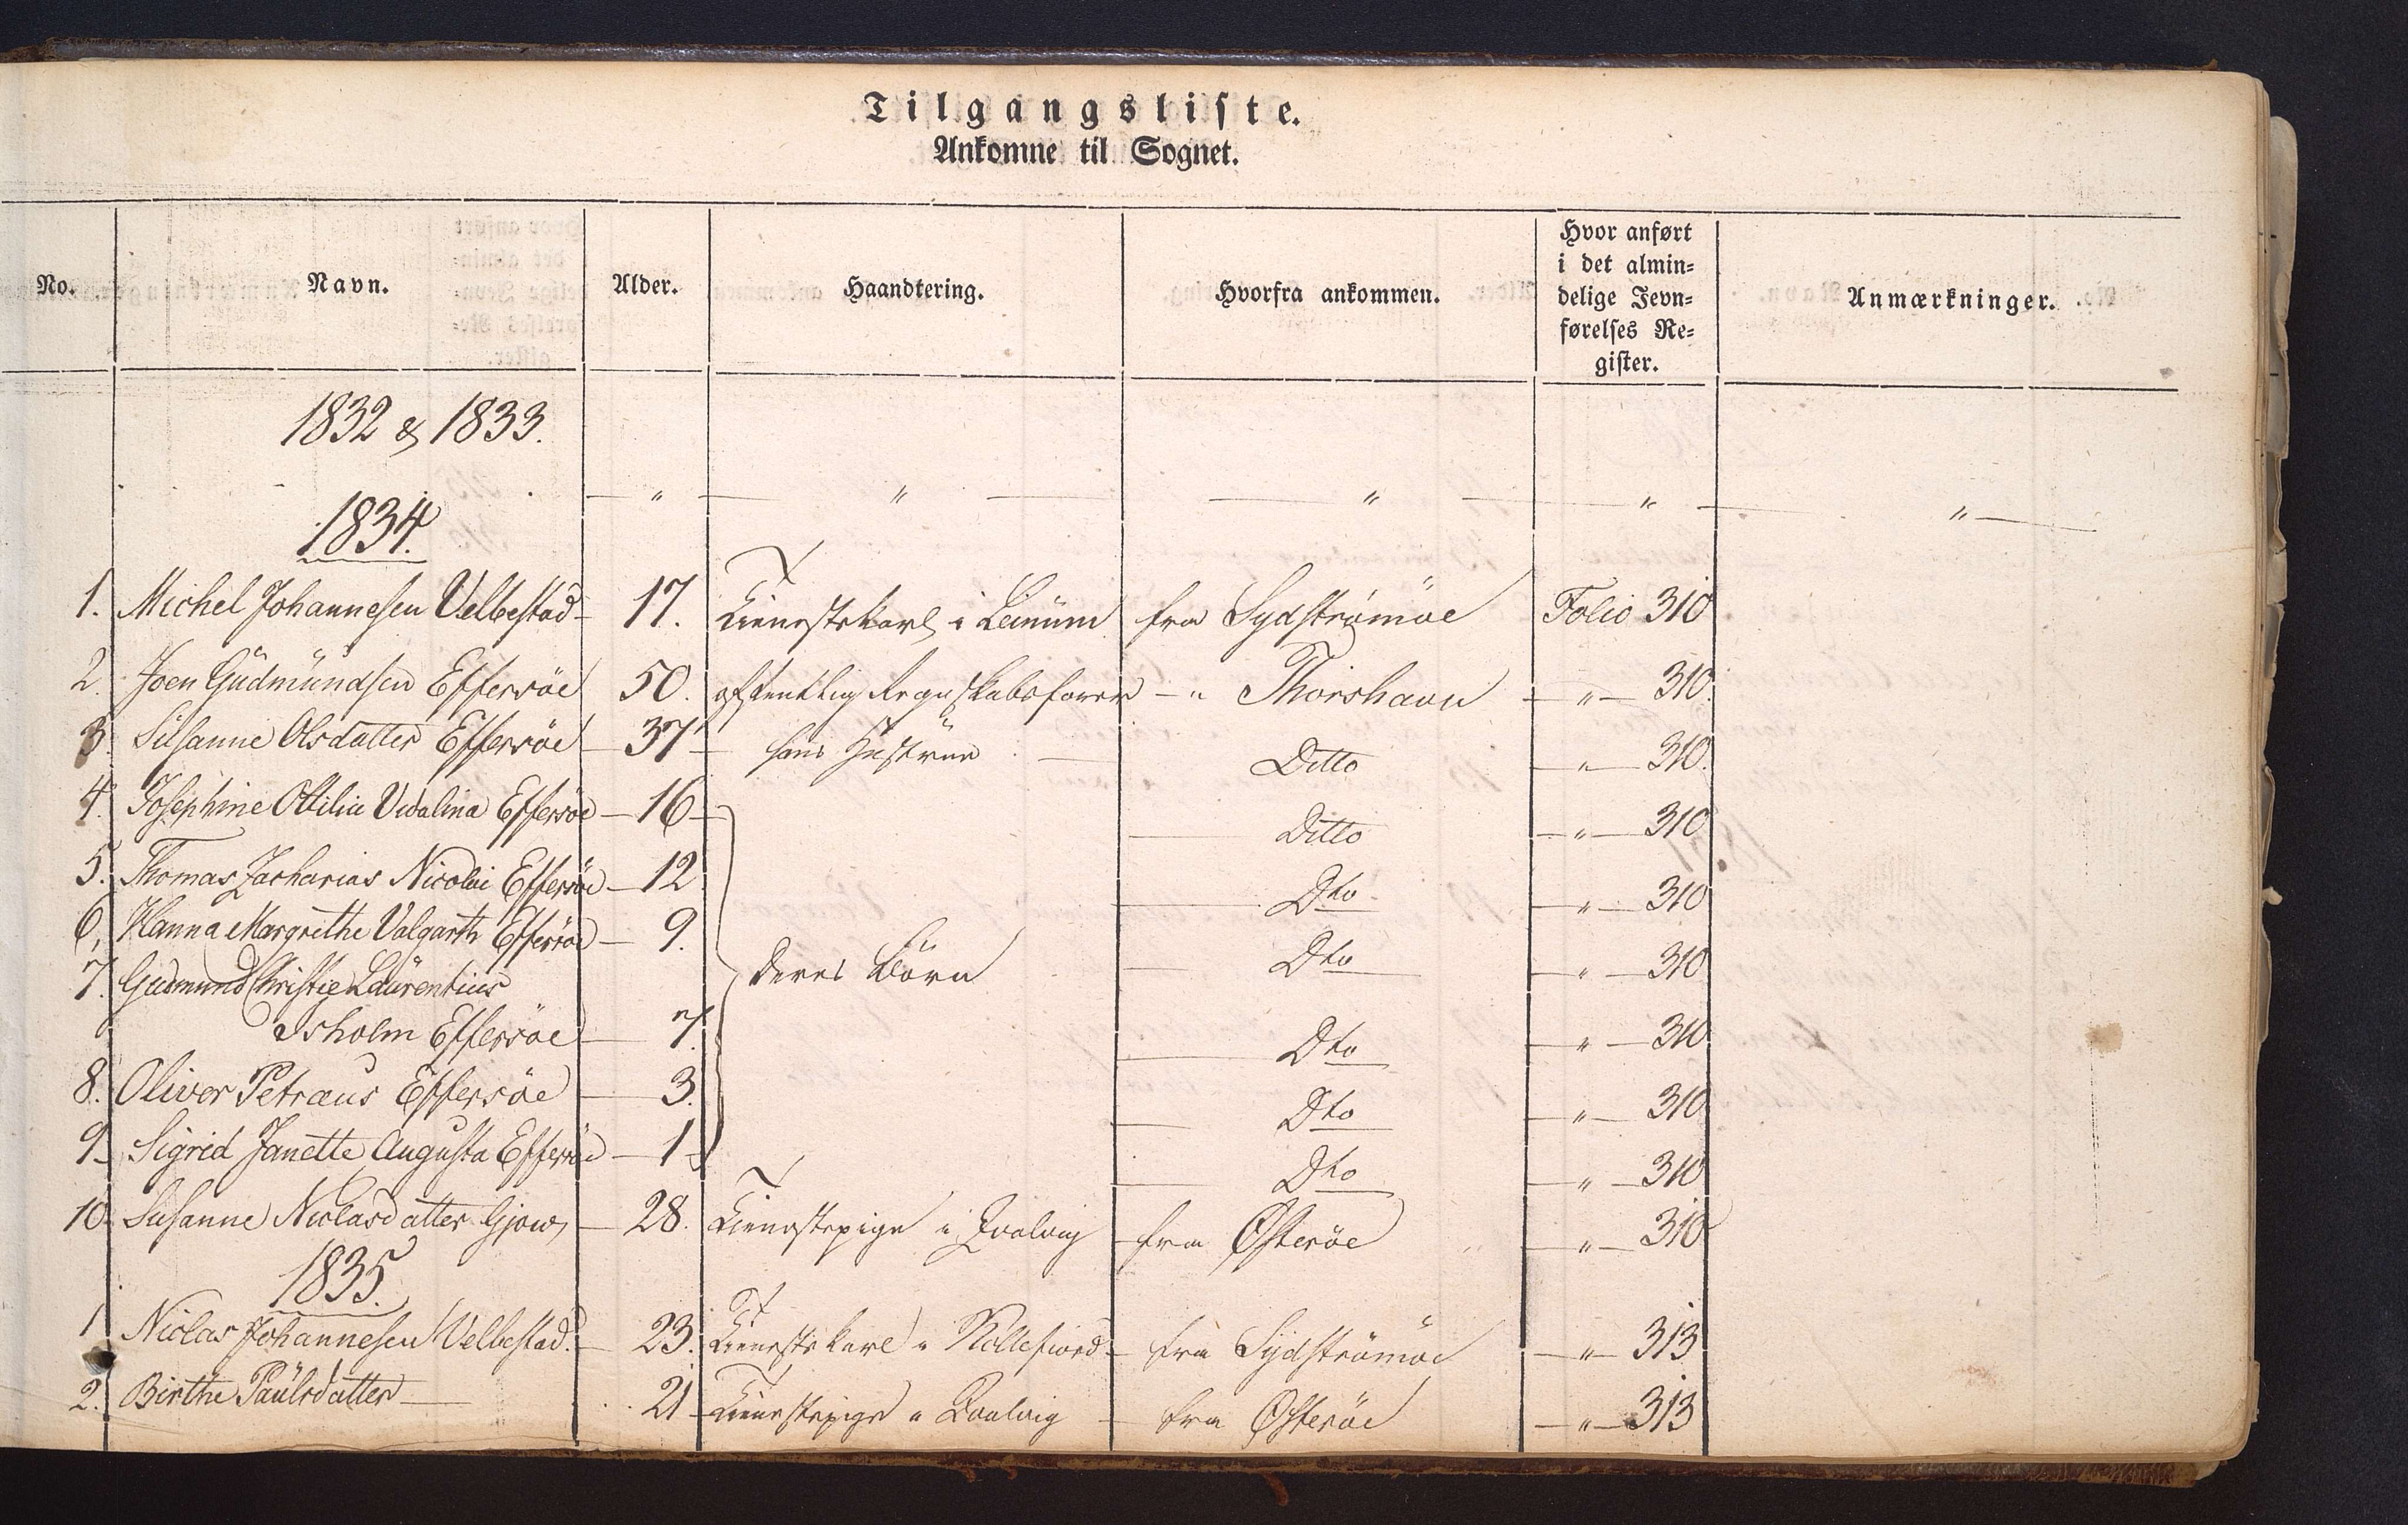 Tilgangsliste.
Ankomne til Sognet.
No. Navn. Alder. Haandtering. Hvorfra ankommen. Hvor anført i det almin= delige Jevn= førelses Re= gister. Anmærkninger.
1832 & 1833.
— " — " — — " — — " — — " —
1834.
1. Michel Johannesen Velbestad 17. Tienestekarl i Leinüm fra Sydströmöe Folio 310
2. Joen Güdmündsen Effersöe 50. offentlig Regnskabsfører — " Thorshavn — " — 310.
3. Süsanne Olsdatter Effersöe — 37 — hans Hustrüe — Ditto — " — 310.
4. Josephine Ottilia Vidalina Effersöe — 16 — Ditto — " — 310
5. Thomas Zacharias Nicolai Effersöe — 12 — Dto — " — 310
6. Hanna Margrethe Valgarth Effersöe — 9. deres Börn — Dto — " — 310
7. Gudmund Christie Laürentius
Isholm Effersöe — 7. — Dto — " — 310
8. Oliver Petræus Effersöe — 3. — Dto — " — 310
9. Sigrid Janette Augusta Effersöe — 1 — Dto — " — 310
10. Susanne Niclasdatter Gjow — 28. Tienestepige i Qvalvig fra Østeröe — " — 310
1835.
1 Niclas Johannesen Velbestad. — 23. Tienestekarl i Kollefiord — fra Sydströmöe — " — 313
2. Birthe Paülsdatter — 21 — Tienestepige i Qvalvig — fra Østeröe — " — 313